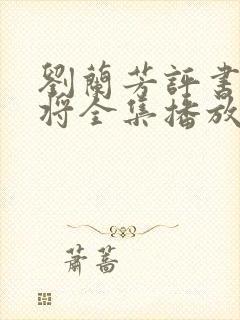 劉蘭芳評書
將全集播放
蕭蒿